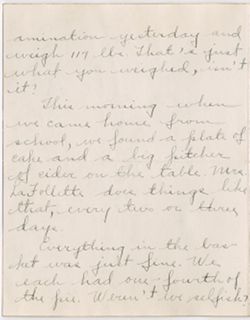 amination yesterday and
weigh 117 lbs. That's just
what you weighed, isn't
it?
This morning when
we came home from
school, we found a plate of
cake and a big pitcher
of cider on the table. Mrs.
LaFollette does things like
that, every two or three
days.
Everything in the bas-
ket was just fine. We
each had one-fourth of
the pie. Weren't we selfish?